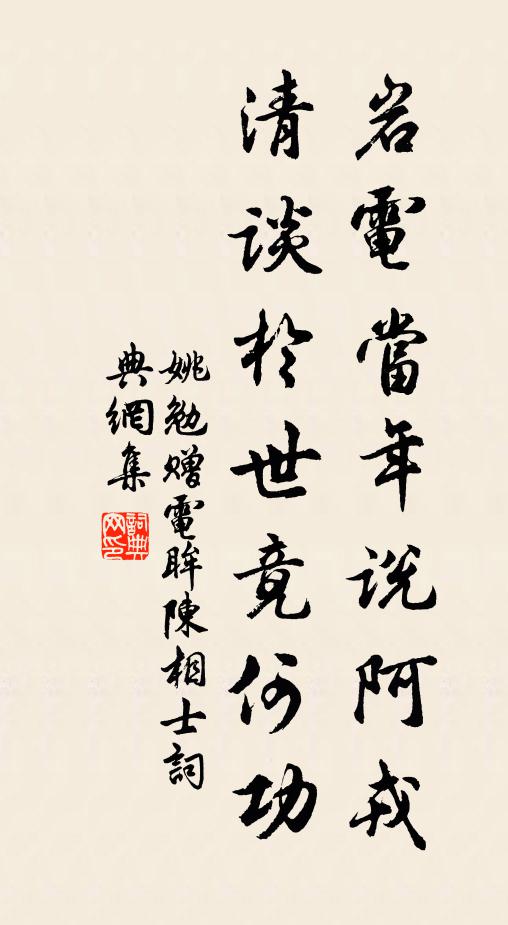 岩電當年說阿戎
清談於世竟何功
姚勉贈電眸陳相士詞
典網集
詞典網印